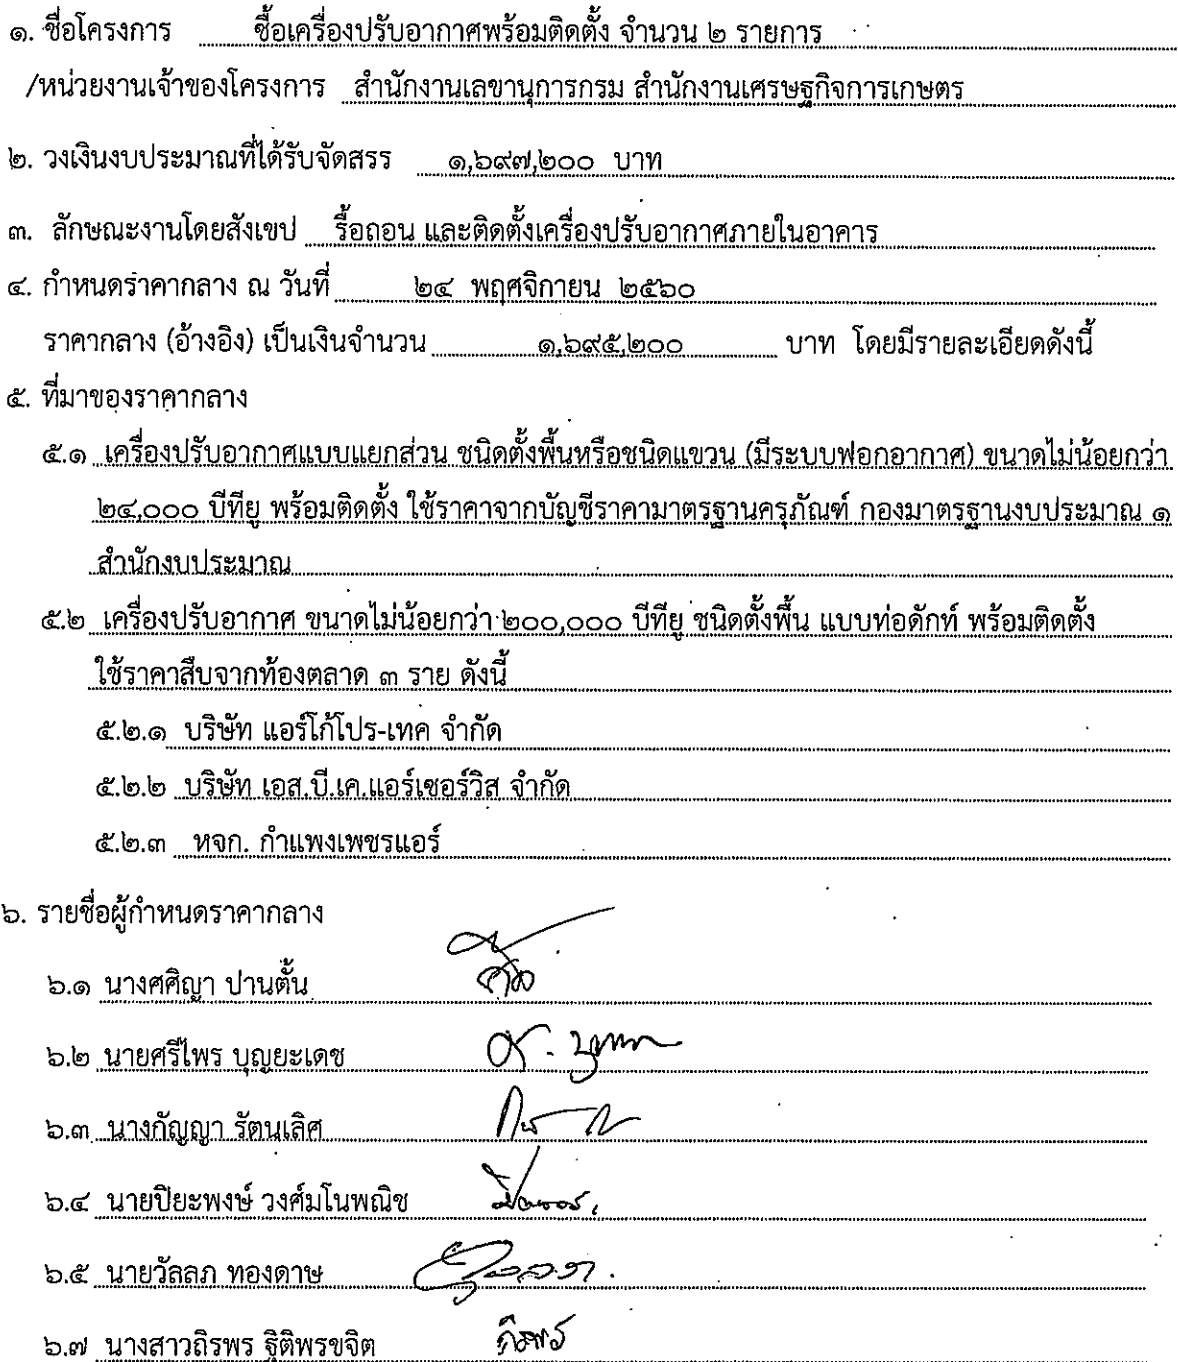 ๑. ชื่อโครงการ ซื้อเครื่องปรับอากาศพร้อมติดตั้ง จำนวน ๒ รายการ
/หน่วยงานเจ้าของโครงการ สำนักงานเลขานุการกรม สำนักงานเศรษฐกิจการเกษตร
๒. วงเงินงบประมาณที่ได้รับจัดสรร ๑,๖๙๗,๒๐๐ บาท
๓. ลักษณะงานโดยสังเขป รื้อถอน และติดตั้งเครื่องปรับอากาศภายในอาคาร
๔. กำหนดราคากลาง ณ วันที่ ๒๔ พฤศจิกายน ๒๕๖๐
ราคากลาง (อ้างอิง) เป็นเงินจำนวน ๑,๖๙๕,๒๐๐ บาท โดยมีรายละเอียดดังนี้
๕. ที่มาของราคากลาง
๕.๑ เครื่องปรับอากาศแบบแยกส่วน ชนิดตั้งพื้นหรือชนิดแขวน (มีระบบฟอกอากาศ) ขนาดไม่น้อยกว่า
๒๔,๐๐๐ บีทียู พร้อมติดตั้ง ใช้ราคาจากบัญชีราคามาตรฐานครุภัณฑ์ กองมาตรฐานงบประมาณ ๑
สำนักงบประมาณ
๕.๒ เครื่องปรับอากาศ ขนาดไม่น้อยกว่า ๒๐๐,๐๐๐ บีทียู ชนิดตั้งพื้น แบบท่อดักท์ พร้อมติดตั้ง
ใช้ราคาสืบจากท้องตลาด ๓ ราย ดังนี้
๕.๒.๑ บริษัท แอร์โก้โปร-เทค จำกัด
๕.๒.๒ บริษัท เอส.บี.เค.แอร์เซอร์วิส จำกัด
๕.๒.๓ หจก. กำแพงเพชรแอร์
๖. รายชื่อผู้กำหนดราคากลาง
๖.๑ นางศศิญา ปานตั้น
๖.๒ นายศรีไพร บุญยะเดช
๖.๓ นางกัญญา รัตนเลิศ
๖.๔ นายปิยะพงษ์ วงศ์มโนพณิช
๖.๕ นายวัลลภ ทองดาษ
๖.๗ นางสาวถิรพร ฐิติพรขจิต ถิรพร